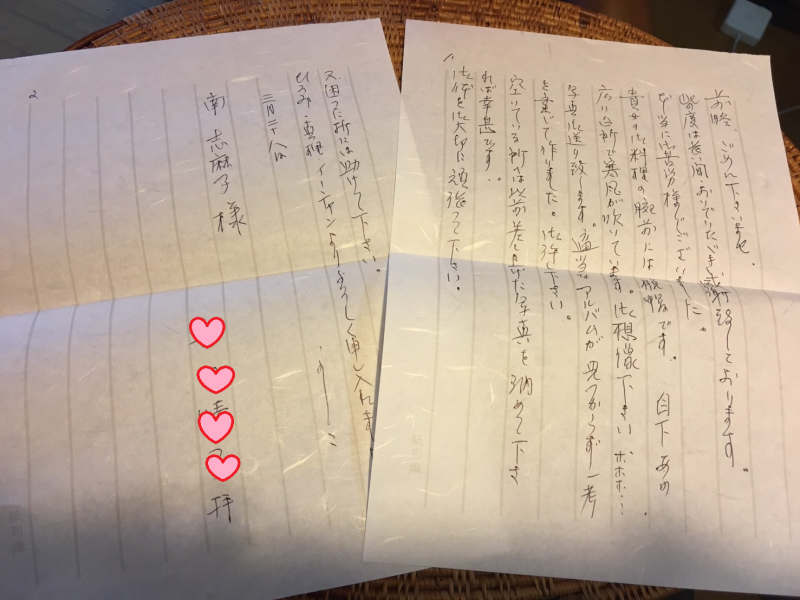 1
前略、ごめん下さいませ。
此の度は長い間おいでいただき感謝しております。
本当に御苦労様でございました。
貴女の御料理の腕前には脱帽です。目下あの
広い台所で寒風が吹いています。御想像下さい ホホホ…
写真御送り致します。適当なアルバムが見つからず一考
を案じて作りました。御笑下さい。
空いている所には以前差し上げた写真を納めて下さ
れば幸甚です。
御体を大切に頑張って下さい。
2
又困った折には助けて下さい。
ひろみ・真理 イーチャンよりよろしく申し入れます。
三月二十八日
南 志麻子 様
拝